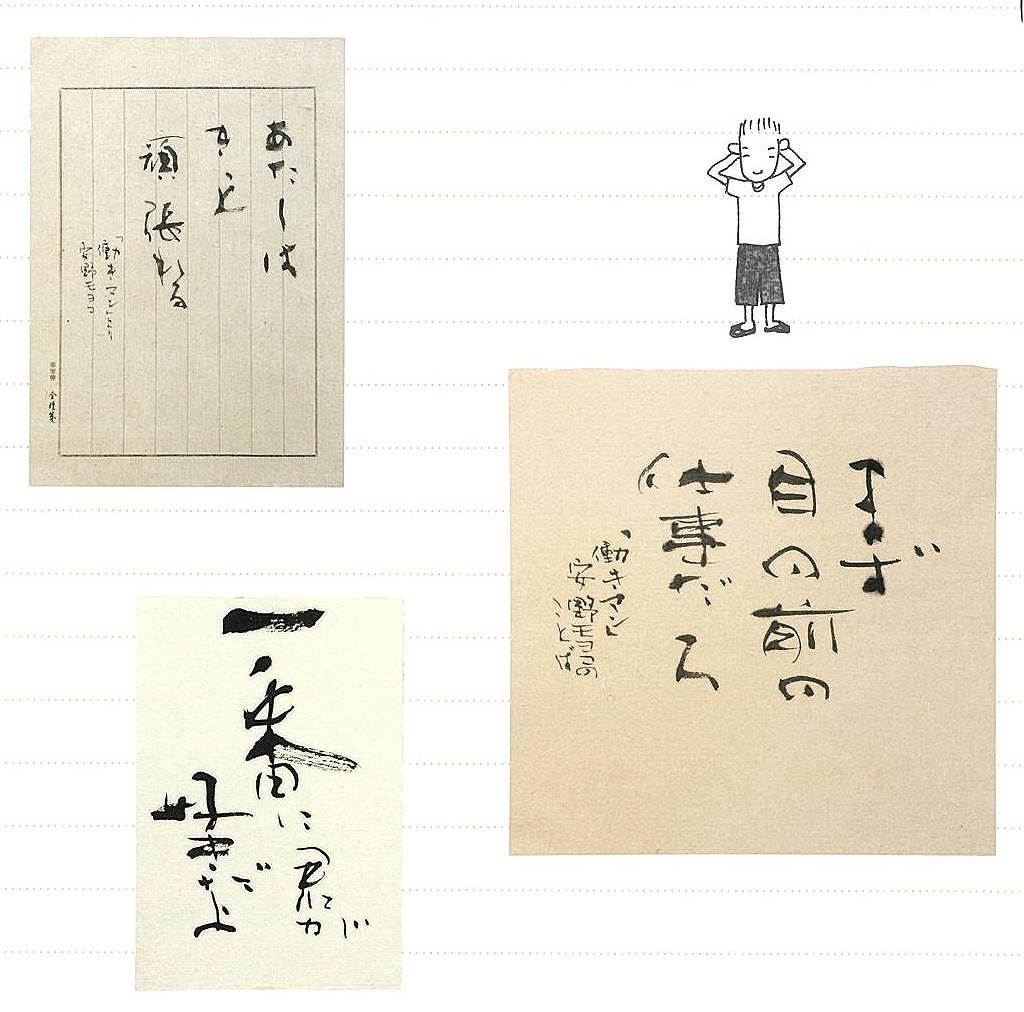 あたしは
きっと
頑張れる
「働きマン」より
安野モヨコ
まず
目の前の
仕事だろ
「働きマン」
安野モヨコの
ことば
一番に
君が
好きだよ